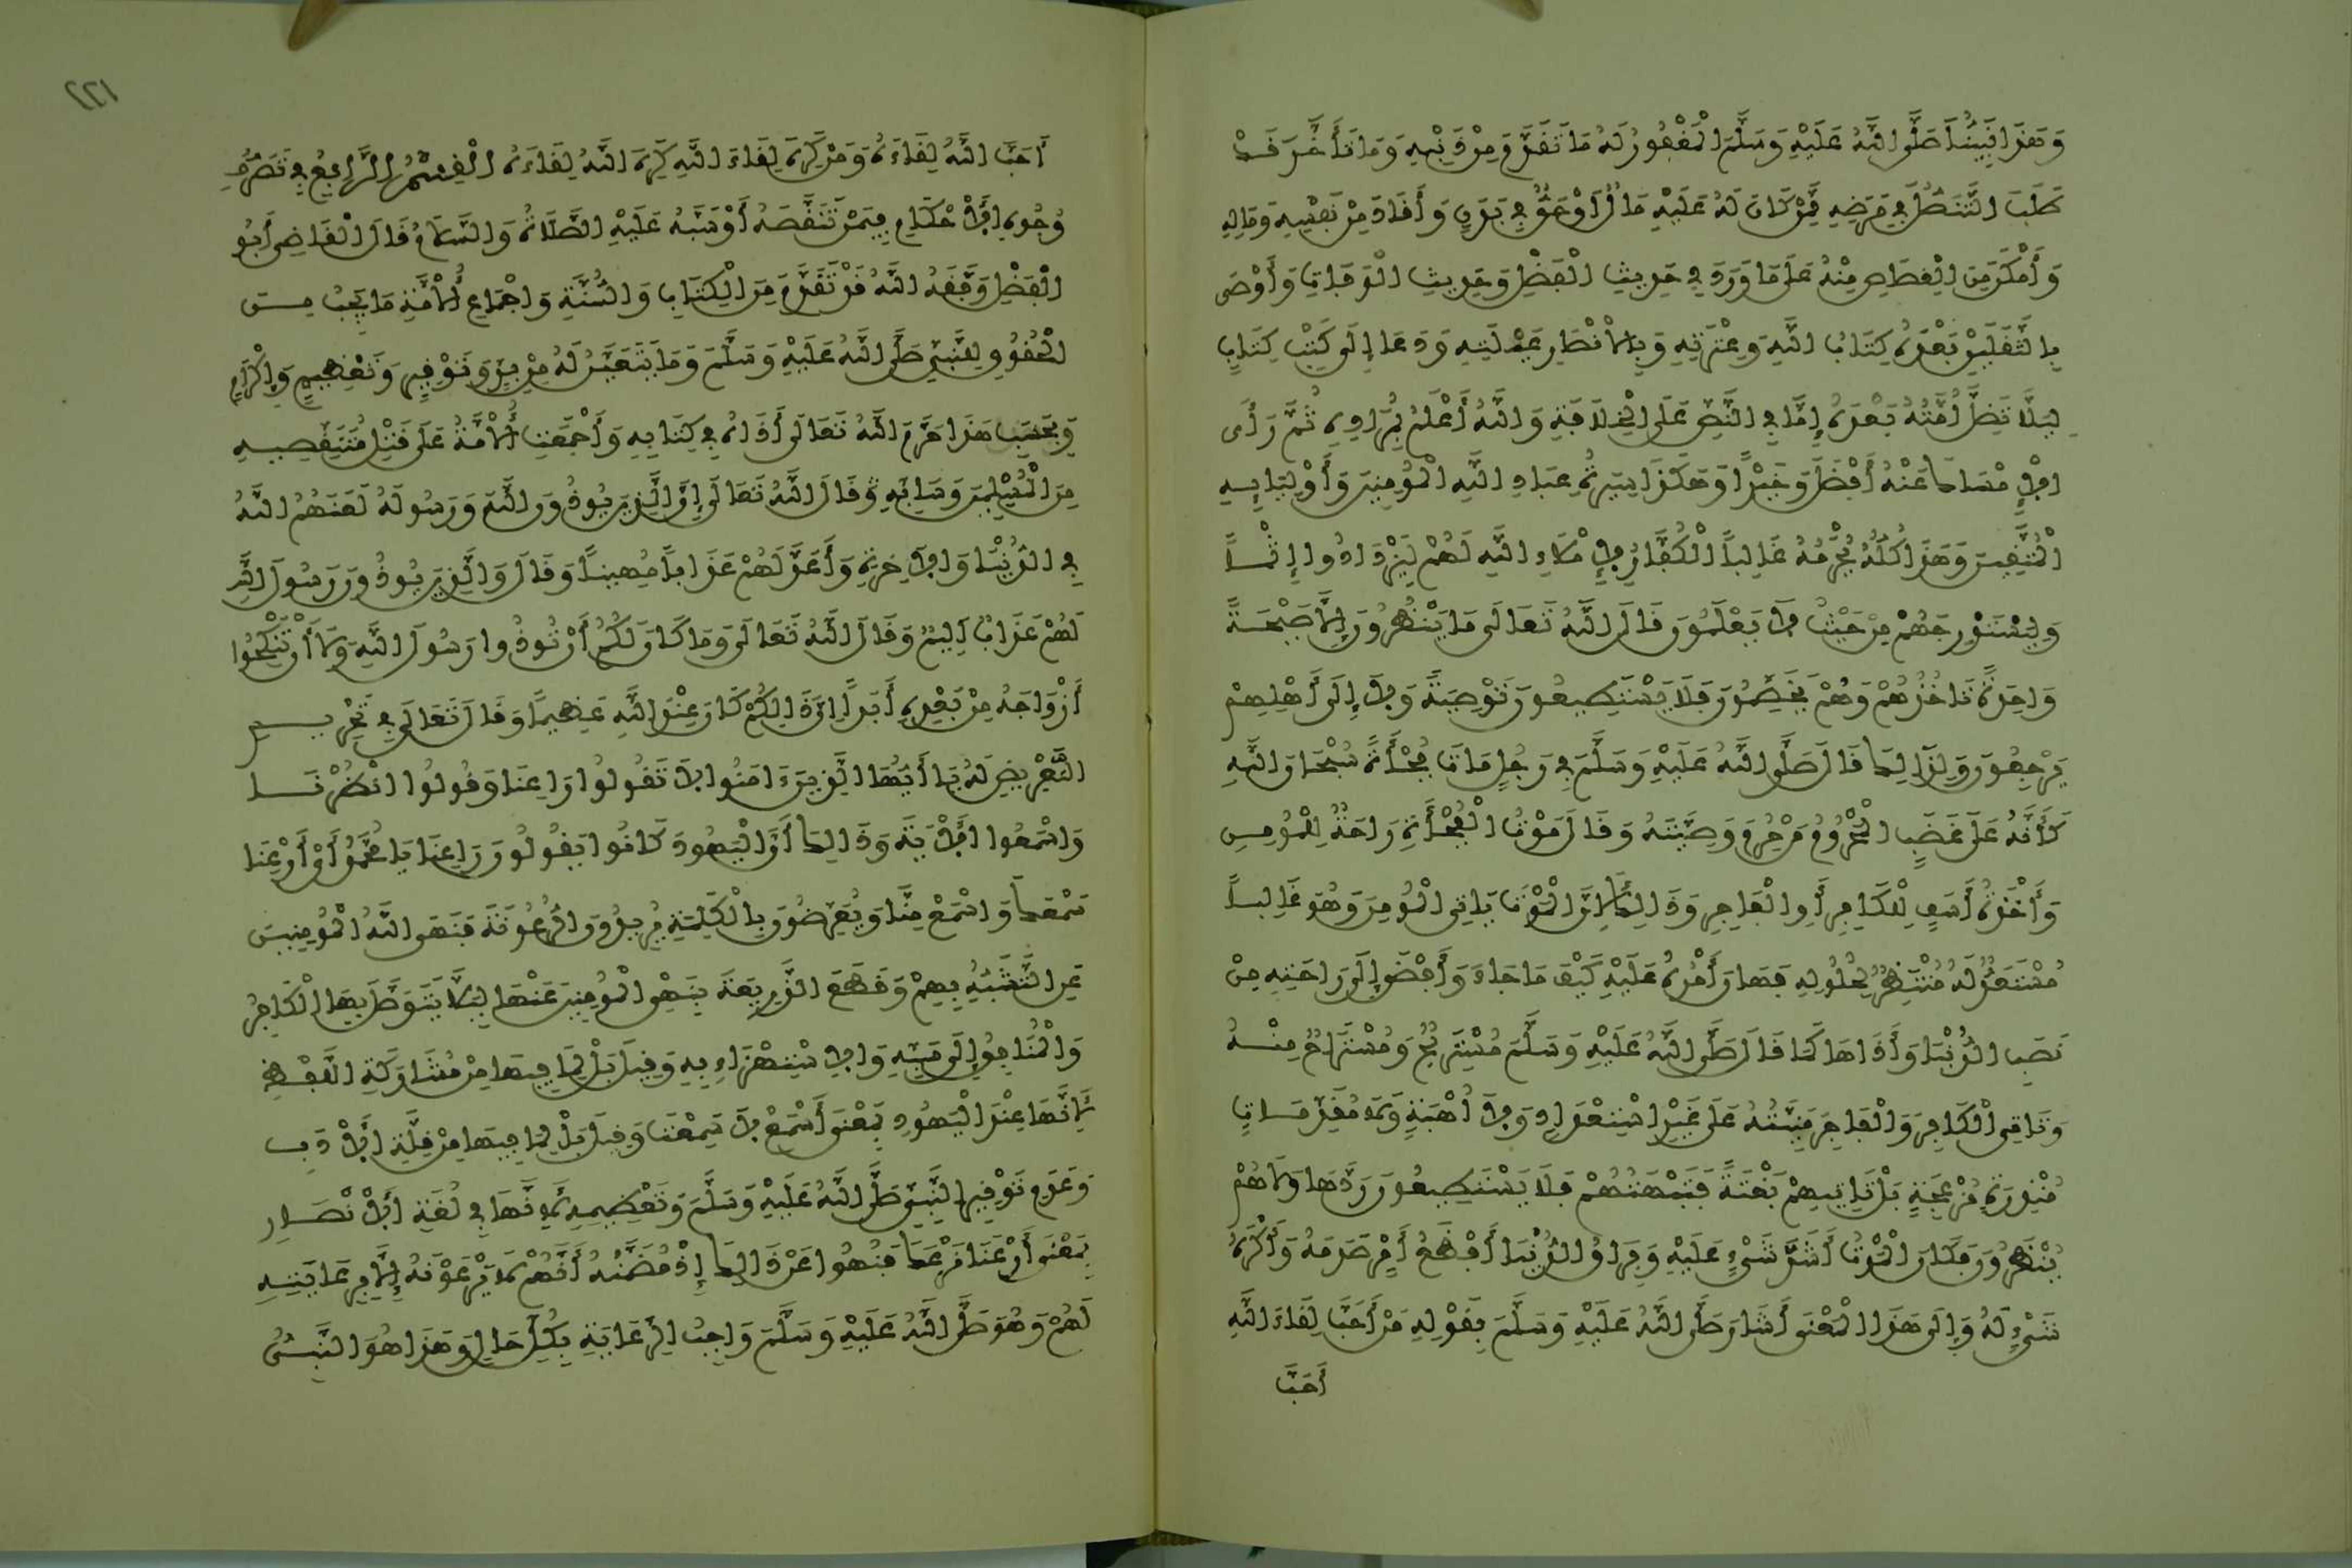 وَهَذَا نَبِيُّنَا صَلَّى اللَّهُ عَلَيْهِ وَسَلَّمَ الْمَغْفُورُ لَهُ مَا تَقَدَّمَ مِنْ ذَنْبِهِ وَمَا تَأَخَّرَ قَدْ
طَلَبَ التَّنَصُّلَ فِي مَرَضِهِ مِمَّنْ كَانَ لَهُ عَلَيْهِ مَالٌ أَوْ حَقٌّ فِي بَدَنٍ وَأَقَادَ مِنْ نَفْسِهِ وَمَالِهِ
وَأَمْكَنَ مِنَ الْقِصَاصِ مِنْهُ عَلَى مَا وَرَدَ فِي حَدِيثِ الْفَضْلِ وَحَدِيثِ الْوَفَاةِ وَأَوْصَى
بِالثَّقَلَيْنِ بَعْدَهُ كِتَابِ اللَّهِ وَعِتْرَتِهِ وَبِالْأَنْصَارِ عَيْبَتِهِ وَدَعَا إِلَى كَتْبِ كِتَابٍ
لِيَلَّا تَضِلَّ أُمَّتُهُ بَعْدَهُ إِمَّا فِي النَّصِّ عَلَى الْخِلَافَةِ وَاللَّهُ أَعْلَمُ بِمُرَادِهِ ثُمَّ رَأَى
الْإِمْسَاكَ عَنْهُ أَفْضَلَ وَخَيْرًا وَهَكَذَا سِيرَةُ عِبَادِ اللَّهِ الْمُؤْمِنِينَ وَأَوْلِيَائِهِ
الْمُتَّقِينَ وَهَذَا كُلُّهُ يُحْرَمُهُ غَالِبًا الْكُفَّارُ لِإِمْلَاءِ اللَّهِ لَهُمْ لِيَزْدَادُوا إِثْمًا
وَلِيَسْتَدْرِجَهُمْ مِنْ حَيْثُ لَا يَعْلَمُونَ قَالَ اللَّهُ تَعَالَى مَا يَنْظُرُونَ إِلَّا صَيْحَةً
وَاحِدَةً تَاخُذُهُمْ وَهُمْ يَخَصِّمُونَ فَلَا يَسْتَطِيعُونَ تَوْصِيَةً وَلَا إِلَى أَهْلِهِمْ
يَرْجِعُونَ وَلِذَلِكَ قَالَ صَلَّى اللَّهُ عَلَيْهِ وَسَلَّمَ فِي رَجُلٍ مَاتَ فُجْأَةً سُبْحَانَ اللَّهِ
كَأَنَّهُ عَلَى غَضَبٍ الْمَحْرُومُ مَنْ حُرِمَ وَصِيَّتَهُ وَقَالَ مَوْتُ الْفُجْأَةِ رَاحَةٌ لِلْمُؤْمِنِ
وَأَخْذَةُ أَسَفٍ لِلْكَافِرِ أَوِ الْفَاجِرِ وَذَلِكَ لِأَنَّ الْمَوْتَ يَاتِي الْمُؤْمِنَ وَهُوَ غَالِبًا
مُسْتَعِدٌّ لَهُ مُنْتَظِرٌ لِحُلُولِهِ فَهَانَ أَمْرُهُ عَلَيْهِ كَيْفَ مَا جَاءَ وَأَفْضَى إِلَى رَاحَتِهِ مِنْ
نَصَبِ الدُّنْيَا وَأَذَاهَا كَمَا قَالَ صَلَّى اللَّهُ عَلَيْهِ وَسَلَّمَ مُسْتَرِيحٌ وَمُسْتَرَاحٌ مِنْهُ
وَتَاتِي الْكَافِرَ وَالْفَاجِرَ مَنِيَّتُهُ عَلَى غَيْرِ اسْتِعْدَادٍ وَلَا أُهْبَةٍ وَلَا مُقَدِّمَاتٍ
مُنْذِرَةٍ مُزْعِجَةٍ بَلْ تَاتِيهِمْ بَغْتَةً فَتَبْهَتُهُمْ فَلَا يَسْتَطِيعُونَ رَدَّهَا وَلَا هُمْ
يُنْظَرُونَ فَكَانَ الْمَوْتُ أَشَدَّ شَيْءٍ عَلَيْهِ وَفِرَاقُ الدُّنْيَا أَفْظَعُ أَمْرٍ صَدَمَهُ وَأَكْرَهُ
شَيْءٍ لَهُ وَإِلَى هَذَا الْمَعْنَى أَشَارَ صَلَّى اللَّهُ عَلَيْهِ وَسَلَّمَ بِقَوْلِهِ مَنْ أَحَبَّ لِقَاءَ اللَّهِ
أَحَبَّ
٢٢١
أَحَبَّ اللَّهُ لِقَاءَهُ وَمَنْ كَرِهَ لِقَاءَ اللَّهِ كَرِهَ اللَّهُ لِقَاءَهُ الْقِسْمُ الرَّابِعُ فِي تَصَرُّفِ
وُجُوهِ الْأَحْكَامِ فِيمَنْ تَنَقَّصَهُ أَوْ سَبَّهُ عَلَيْهِ الصَّلَاةُ وَالسَّلَامُ قَالَ الْقَاضِي أَبُو
الْفَضْلِ وَفَّقَهُ اللَّهُ قَدْ تَقَدَّمَ مِنَ الْكِتَابِ وَالسُّنَّةِ وَإِجْمَاعِ الْأُمَّةِ مَا يَجِبُ مِنَ
الْحُقُوقِ لِلنَّبِيِّ صَلَّى اللَّهُ عَلَيْهِ وَسَلَّمَ وَمَا يَتَعَيَّنُ لَهُ مِنْ بِرٍّ وَتَوْقِيرٍ وَتَعْظِيمٍ وَإِكْرَامٍ
وَبِحَسَبِ هَذَا حَرَّمَ اللَّهُ تَعَالَى أَذَاهُ فِي كِتَابِهِ وَأَجْمَعَتِ الْأُمَّةُ عَلَى قَتْلِ مُتَنَقِّصِيهِ
مِنَ الْمُسْلِمِينَ وَسَابِّهِ وَقَالَ اللَّهُ تَعَالَى إِنَّ الَّذِينَ يُوذُونَ اللَّهَ وَرَسُولَهُ لَعَنَهُمُ اللَّهُ
فِي الدُّنْيَا وَالْآخِرَةِ وَأَعَدَّ لَهُمْ عَذَابًا مُهِينًا وَقَالَ وَالَّذِينَ يُوذُونَ رَسُولَ اللَّهِ
لَهُمْ عَذَابٌ اَلِيمٌ وَقَالَ اللَّهُ تَعَالَى وَمَا كَانَ لَكُمُ أَنْ تُوذُوا رَسُولَ اللَّهِ وَلَا أَنْ تَنْكِحُوا
أَزْوَاجَهُ مِنْ بَعْدِهِ أَبَدًا إِنَّ ذَلِكُمْ كَانَ عِنْدَ اللَّهِ عَظِيمًا وَقَالَ تَعَالَى فِي تَحْرِيمِ
التَّعْرِيضِ لَهُ يَا أَيُّهَا الَّذِينَ ءَامَنُوا لَا تَقُولُوا رَاعِنَا وَقُولُوا انْظُرْنَا
وَاسْمَعُوا الْآيَةَ وَذَلِكَ أَنَّ الْيَهُودَ كَانُوا يَقُولُونَ رَاعِنَا يَا مُحَمَّدُ أَيْ أَرْعِنَا
سَمْعَكَ وَاسْمَعْ مِنَّا وَيُعَرِّضُونَ بِالْكَلِمَةِ يُرِيدُونَ الرُّعُونَةَ فَنَهَى اللَّهُ الْمُؤْمِنِينَ
عَنِ التَّشَبُّهِ بِهِمْ وَقَطَعَ الذَّرِيعَةَ بِنَهْيِ الْمُؤْمِنِينَ عَنْهَا لِيَلَّا يَتَوَصَّلَ بِهَا الْكَافِرُ
وَالْمُنَافِقُ إِلَى سَبِّهِ وَالِاسْتِهْزَاءِ بِهِ وَقِيلَ بَلْ لِمَا فِيهَا مِنْ مُشَارَكَةِ اللَّفْظِ
لِأَنَّهَا عِنْدَ الْيَهُودِ بِمَعْنَى اسْمَعْ لَا سَمِعْتَ وَقِيلَ بَلْ لِمَا فِيهَا مِنْ قِلَّةِ الْأَدَبِ
وَعَدَمِ تَوْقِيرِ النَّبِيِّ صَلَّى اللَّهُ عَلَيْهِ وَسَلَّمَ وَتَعْظِيمِهِ لِأَنَّهَا فِي لُغَةِ الْأَنْصَارِ
بِمَعْنَى أَرْعِنَا نَرْعَكَ فَنُهُوا عَنْ ذَلِكَ إِذْ مُضَمَّنُهُ أَنَّهُمْ لَا يَرْعَوْنَهُ إِلَّا بِرِعَايَتِهِ
لَهُمْ وَهُوَ صَلَّى اللَّهُ عَلَيْهِ وَسَلَّمَ وَاجِبُ الرِّعَايَةِ بِكُلِّ حَالٍ وَهَذَا هُوَ النَّبِيُّ